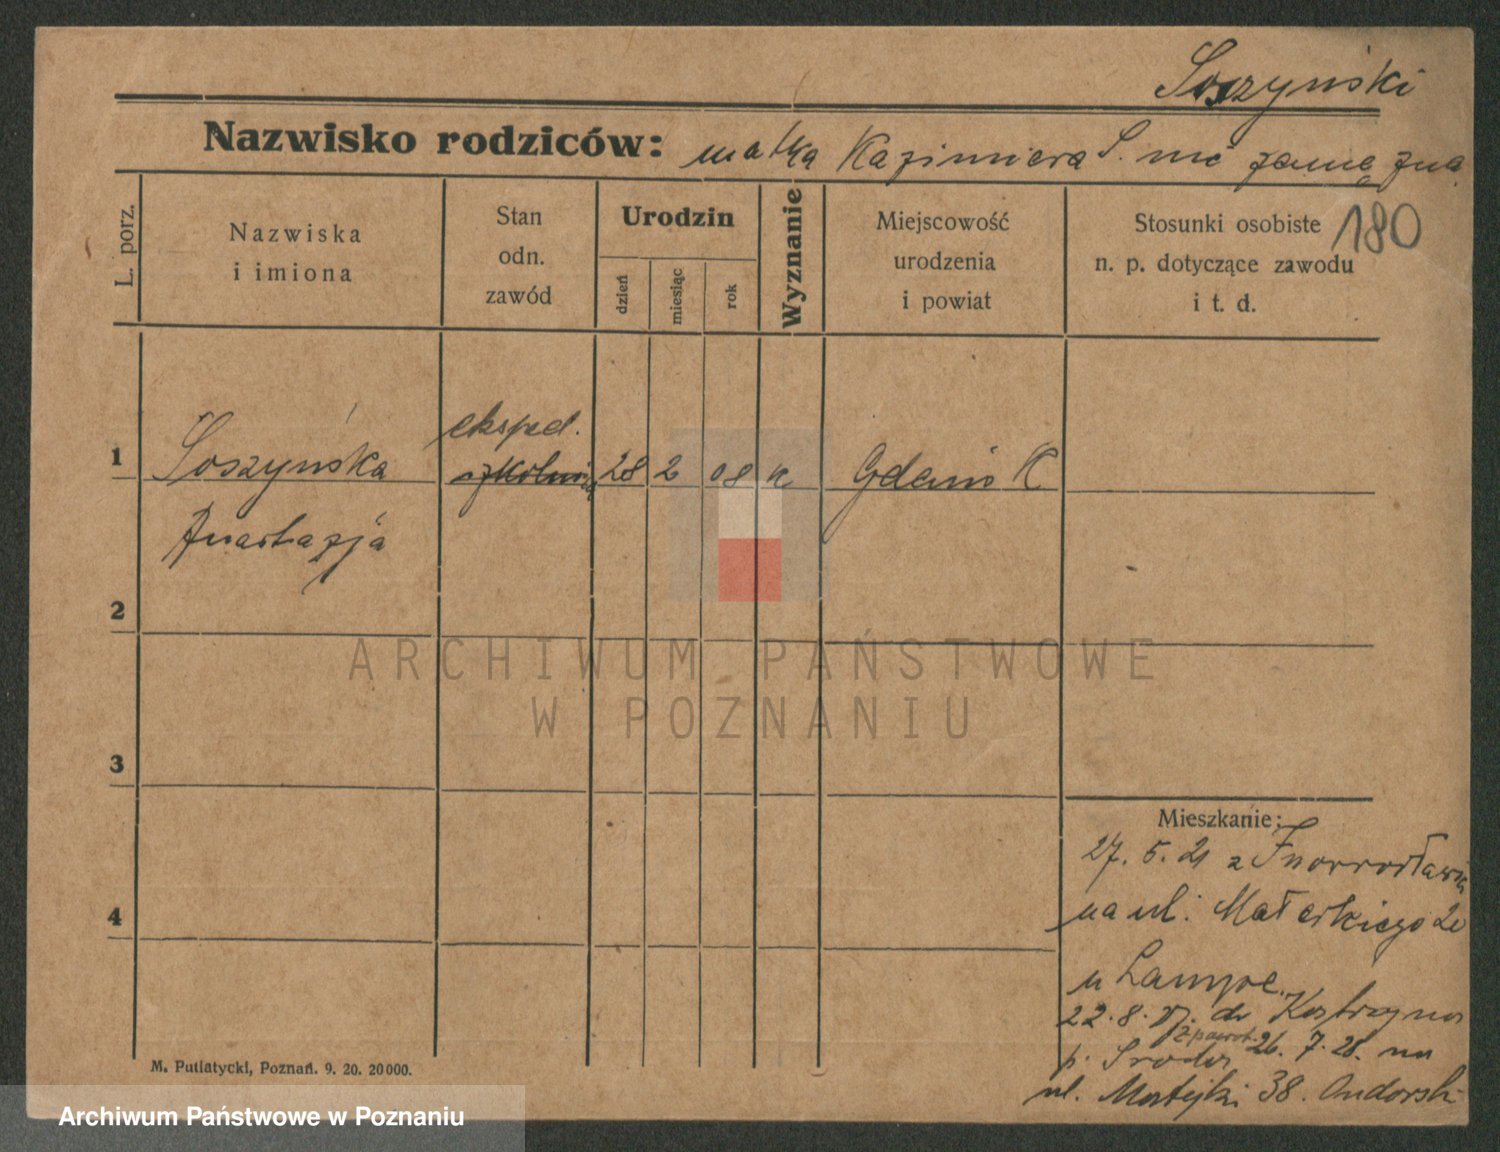 Soszyński
Nazwisko rodziców: matka Kazimiera S. nie zamężna
180
L. porz.
Nazwiska
i imiona
Stan
odn.
zawód
Urodzin
dzień
miesiąc
rok
Wyznanie
Miejscowość
urodzenia
i powiat
Stosunki osobiste
n. p. dotyczące zawodu
i t. d.
eksped.
1 Soszyńska szkolnia 28 2 08 k Gdańsk
Anastazja
2
3
4
ARCHIWUM PAŃSTWOWE
W POZNANIU
Mieszkanie:
27. 5. 21 z Inowrocławia
na ul: Małeckiego 20
u Lampe.
22. 8. 27. do Kostrzyna
p. Środa z powrot. 26. 7. 28. na
ul. Matejki 38.
M. Putiatycki, Poznań. 9. 20. 20000.
Archiwum Państwowe w Poznaniu